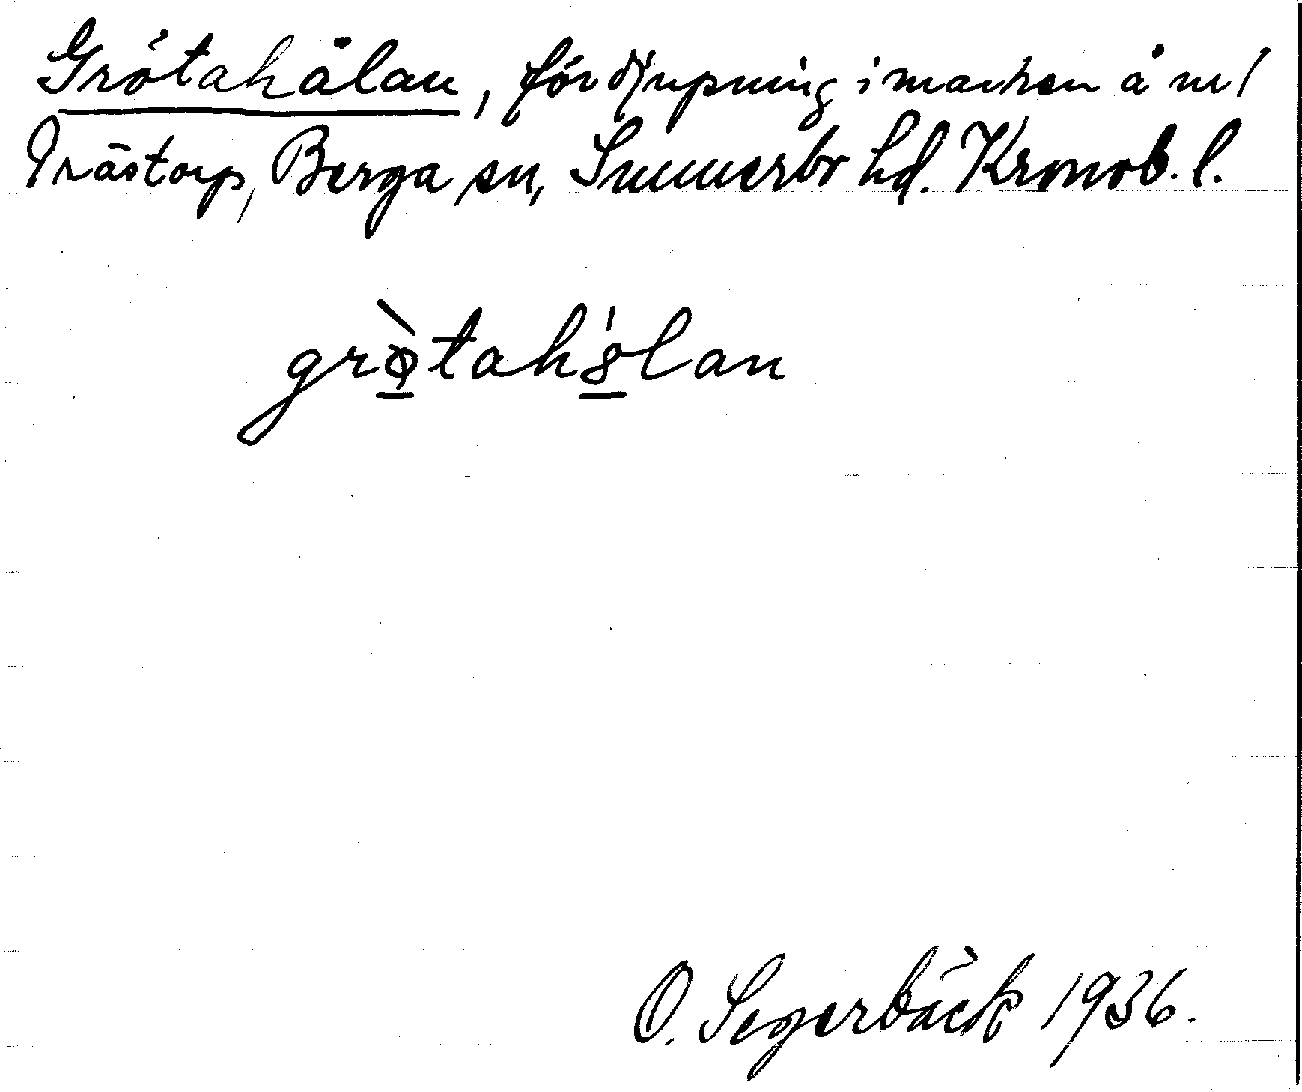 Grötahålan, fördjupning i marken å nr 1
Trästorp, Berga sn, Sunnerbo hd. Kronob. l.
grø̀tahålan
O. Segerbäck 1936.